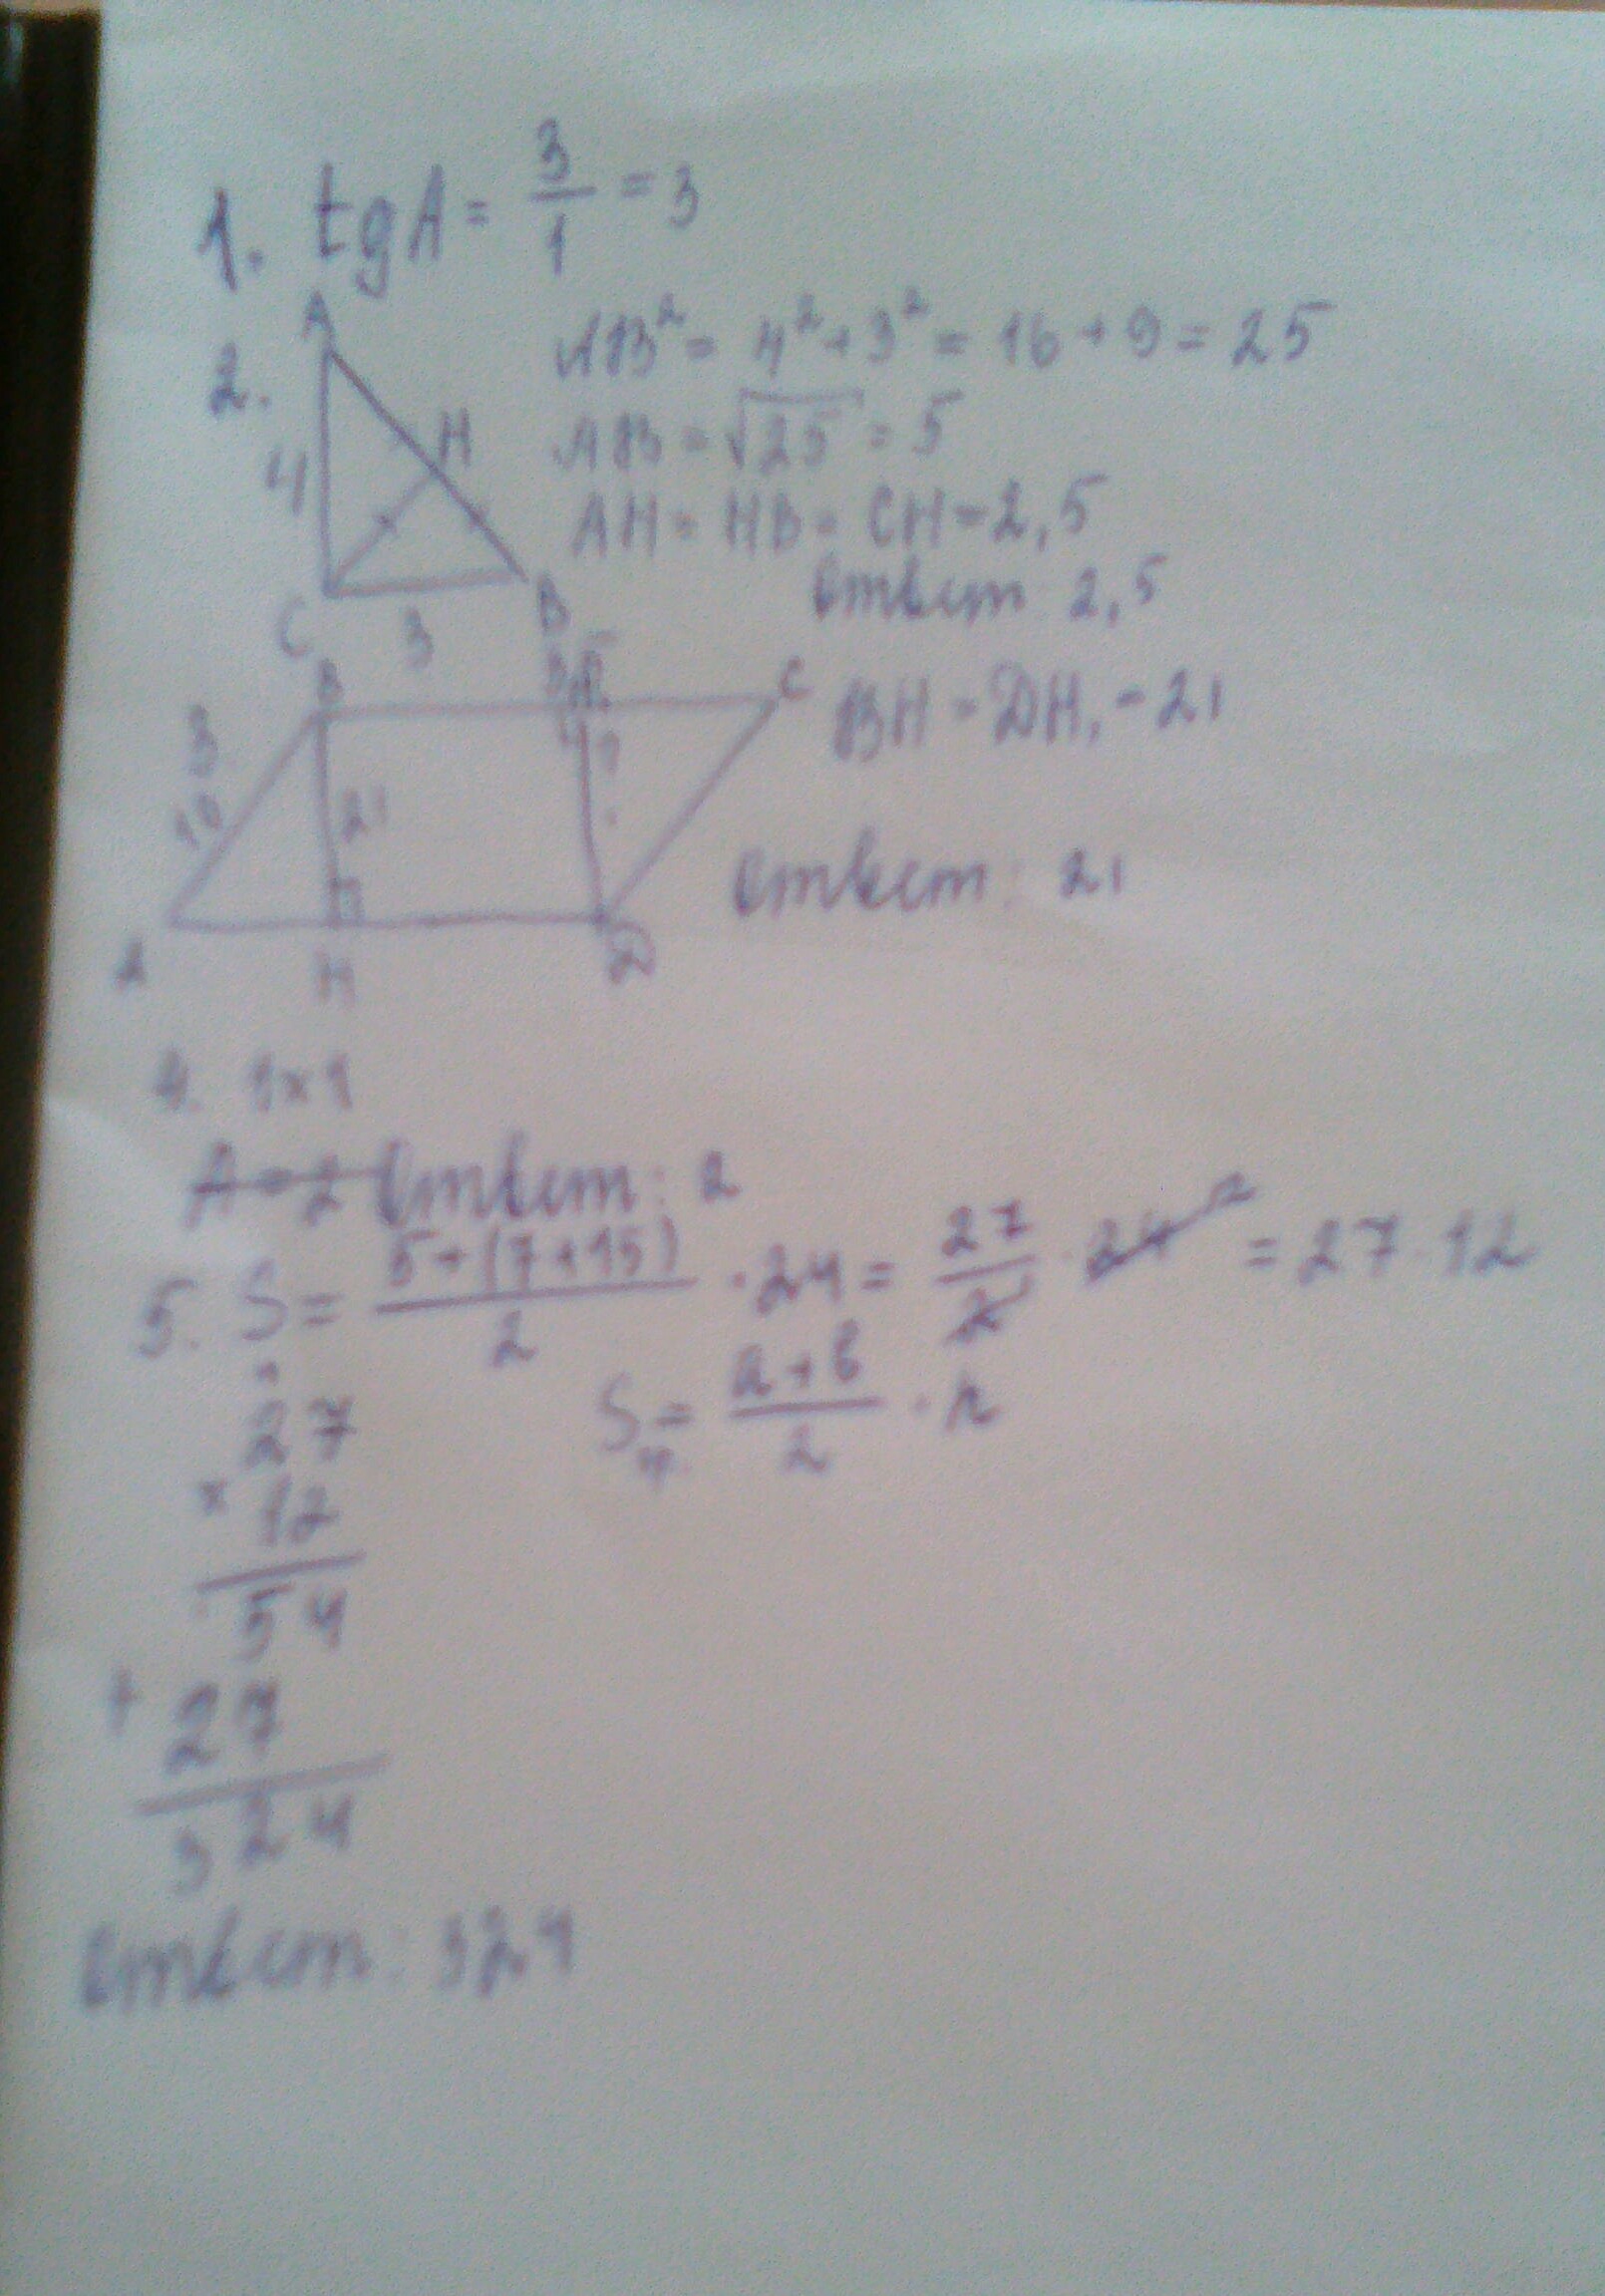 1. tgA = 3/1 = 3
2. AB² = 4² + 3² = 16 + 9 = 25
AB = √25 = 5
AH = HB = CH = 2,5
Ответ 2,5
A
H
4
C
3
B
BH = DH₁ = 21
B
C
3
10
21
?
A
H
D
Ответ: 21
4. 1×1
A = 2 Ответ: 2
5. S = 5+(7+15)/2 · 24 = 27/2 · 24 = 27 · 12
Sтр. = a+b/2 · h
27
× 12
54
+ 27
324
Ответ: 324